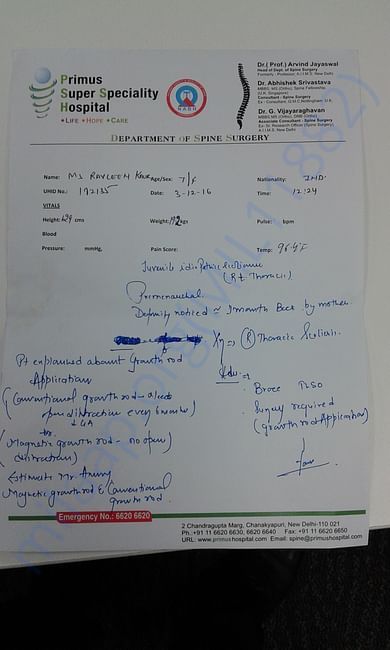 Primus
Super Speciality
Hospital
LIFE HOPE CARE
NABH
Dr.( Prof.) Arvind Jayaswal
Head of Dept. of Spine Surgery
Formerly : Professor, A.I.I.M.S. New Delhi
Dr. Abhishek Srivastava
MBBS, MS (Ortho), Spine Fellowship
(U.K. Singapore)
Consultant - Spine Surgery
Ex - Consultant, Q.M.C.Nottingham, U.K.
Dr. G. Vijayaraghavan
MBBS, MS (Ortho), DNB (Ortho)
Associate Consultant - Spine Surgery
Ex. Sr. Research Officer (Spine Surgery)
A.I.I.M.S, New Delhi
DEPARTMENT OF SPINE SURGERY
Name: Ms Ravleen Kaur Age/Sex: 7/F Nationality: IND
UHID No.: 192135 Date: 3-12-16 Time: 12:24
VITALS
Height: cms Weight: kgs Pulse: bpm
Blood
Pressure: mmHg, Pain Score: Temp:
Juvenile idiopathic Scoliosis
(Rt Thoracic)
Premenarchal
Deformity noticed ≈ 1 month Back by mother
(R) Thoracic Scoliosis.
Pt explained about Growth rod
Application
(Conventional growth rod -
open distraction every 6 months)
↓ GA
Magnetic growth rod - no open
distraction)
Brace TLSO
Surgery required
(growth rod Application)
Estimate Mr.
Magnetic growth rod & Conventional
growth rod.
Emergency No.: 6620 6620
2 Chandragupta Marg, Chanakyapuri, New Delhi-110 021
Ph.:+91 11 6620 6630, 6620 6640 Fax: +91 11 6620 6650
URL: www.primushospital.com Email: spine@primushospital.com